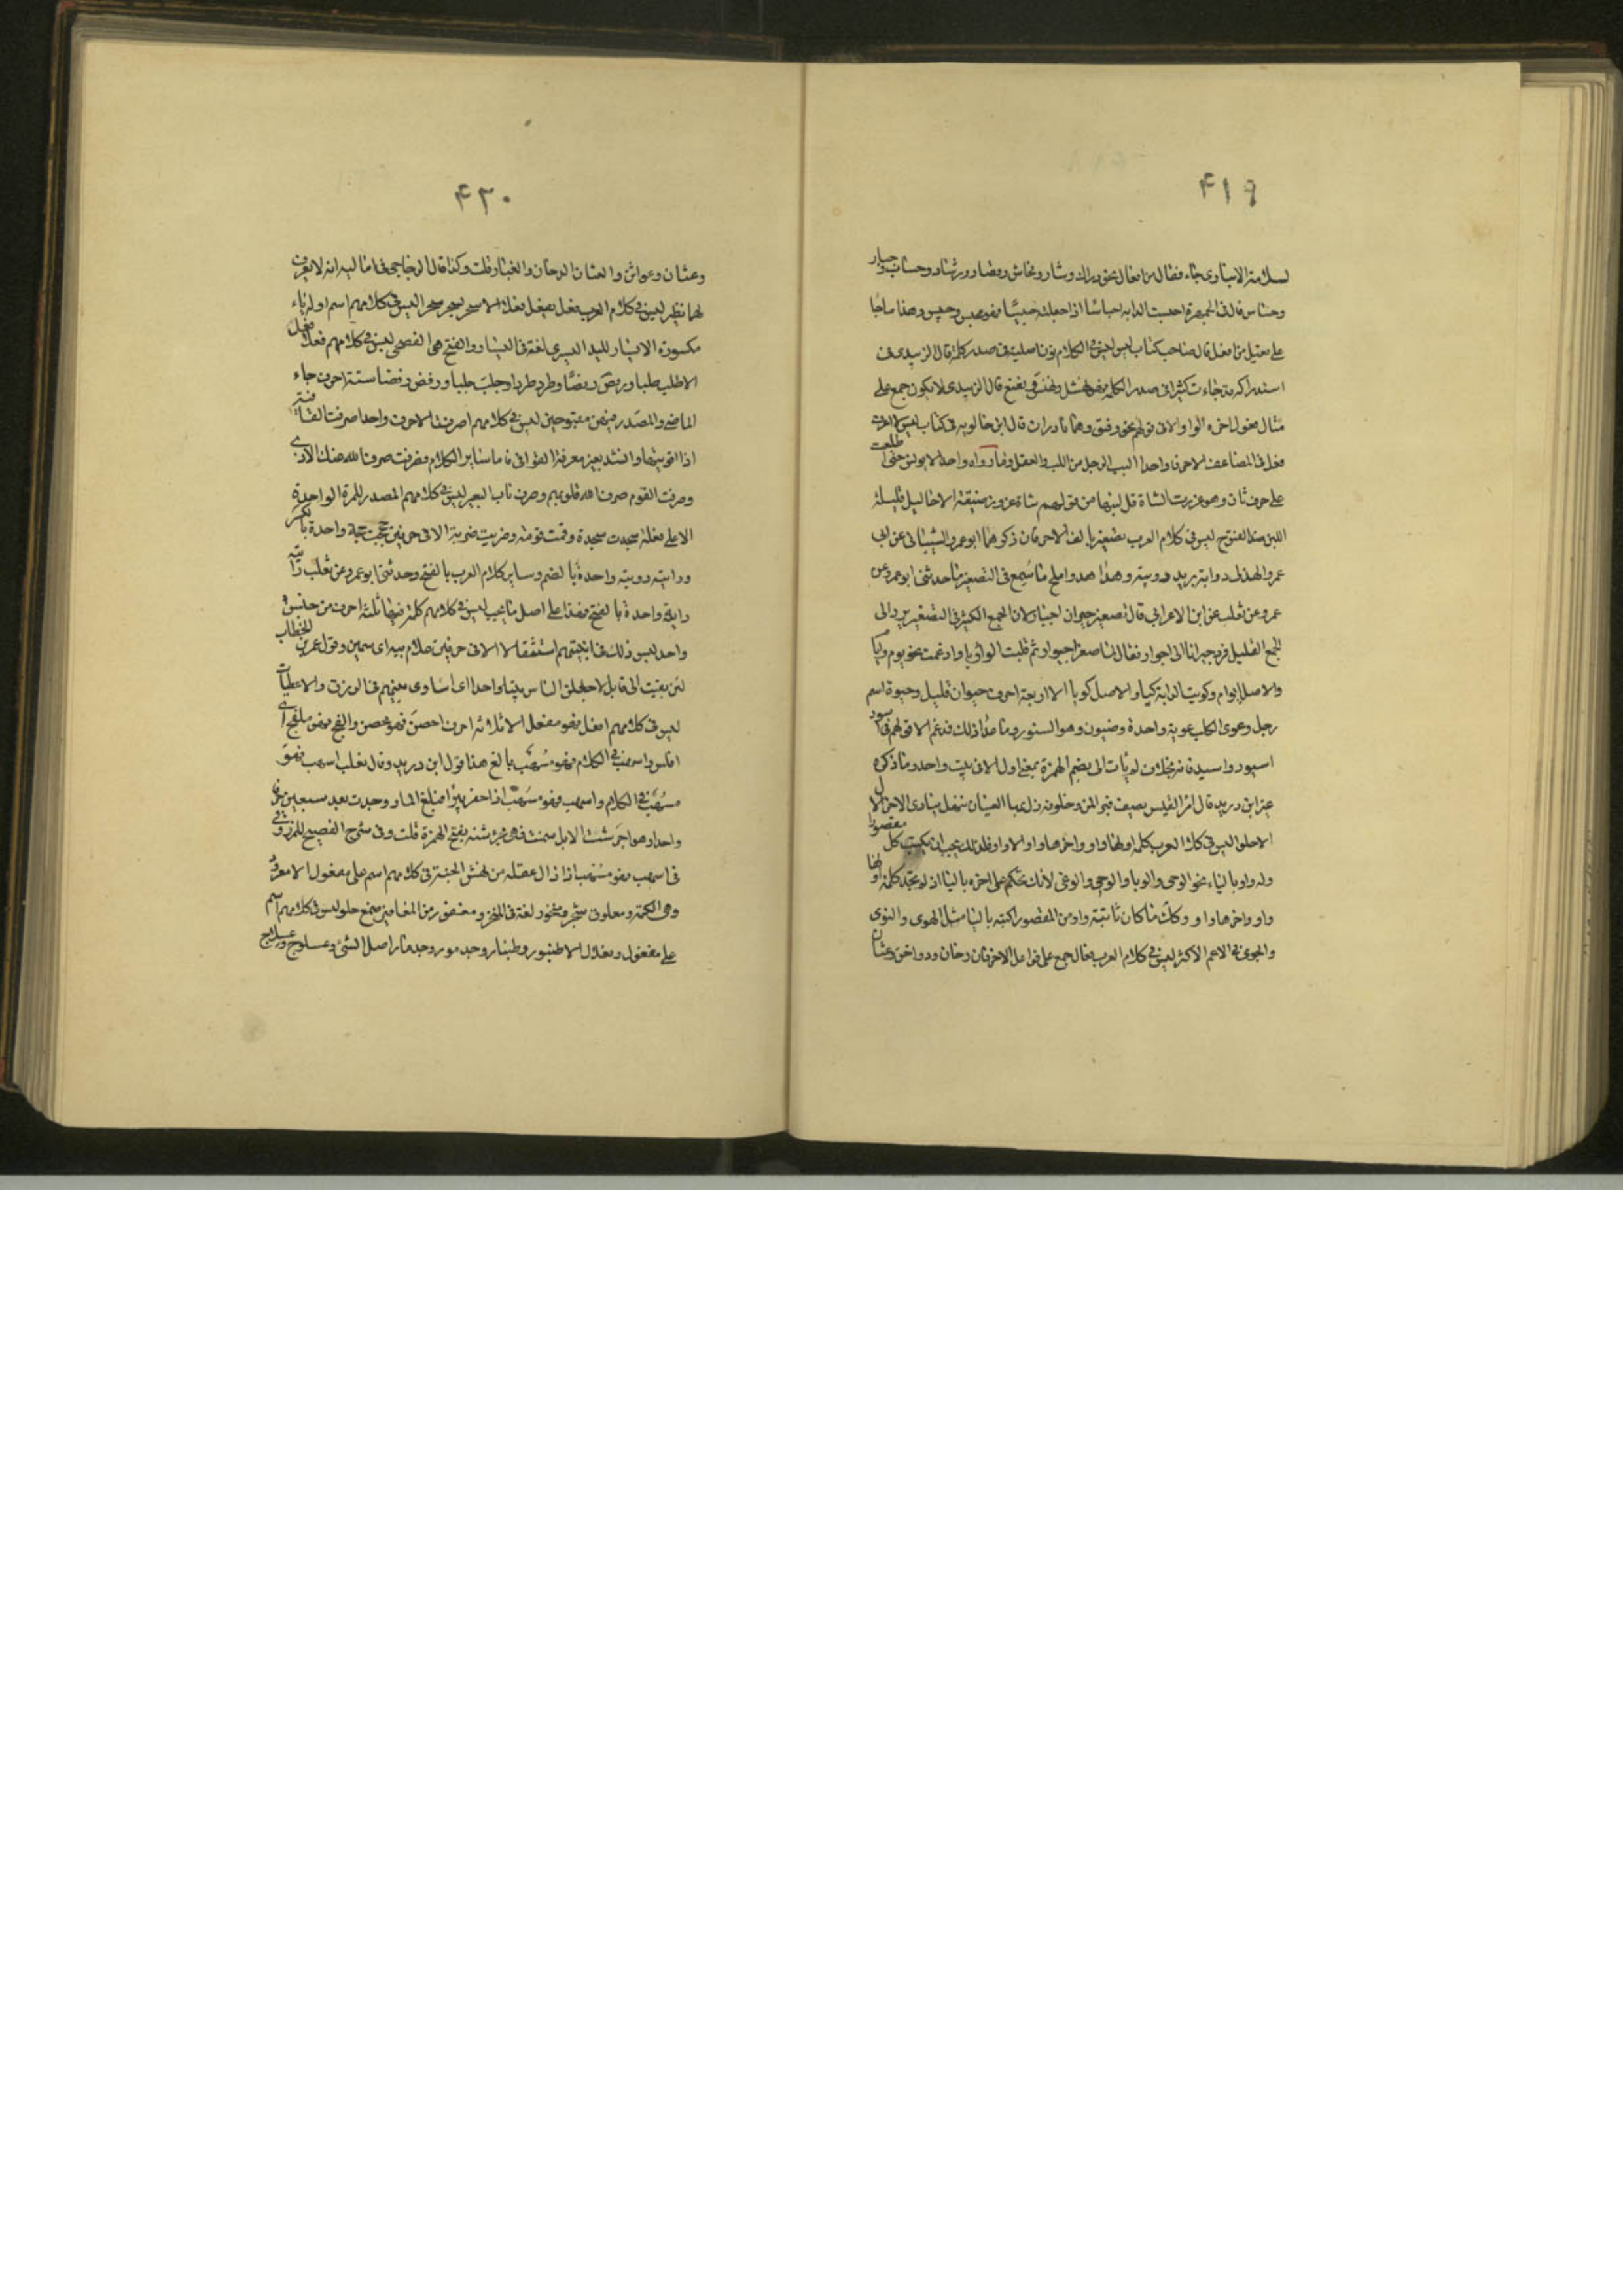 ۴۱۹
لسلامة الانبارى جاء فعال من افعال نحو دراك وسار وفحاش وقصار ورشاد وحساس وجبار
وحساس قال فى الجمهرة احبست الدابة احباسا اذا جعلته حبيسا فهو محبس وحبيس وهذا ماجا
على فعيل من افعل قال صاحب كتاب ليس ليس فى الكلام نون اصلية فى صدر كلمة قال الزبيدى فى
استدراكه قد جاءت كثيرا فى صدر الكلمة نحو نهشل ونهسر ونعنع قال الزبيدى لا يكون جمع على
مثال فعول اخره الواو الا فى قولهم نحو وفتو وهما نادران قال ابن خالويه فى كتاب ليس لم يأت
فعل فى المضاعف الا حرفا واحدا لبب الرجل من اللب والعقل وما رواه واحد الا يونس حتى اطلعت
على حرف ثان وهو عززت الشاة قل لبنها من قولهم شاة عزوز ضيقة الاحاليل قليلة
اللبن ضد الفتوح ليس فى كلام العرب تصغير بالف الا حرفان ذكرهما ابو عمرو الشيبانى عن ابى
عمرو الهذلى دوابة يريد دويبة وهداهد واملح ما سمع فى التصغير ما حدثنى ابو عمر عن
عمرو عن ثعلب عن ابن الاعرابى قال تصغير جيران اجيار لان الجمع الكثير فى التصغير يرد الى
الجمع القليل فرد جيرانا الى اجوار فقال لما صغر اجيوار ثم قلبت الواو يا وادغمت نحو يوم وايام
والاصل ايوام وكويت الدابة كيا والاصل كويا الا اربعة احرف حيوان قليل وحيوة اسم
رجل وعوى الكلب عوية واحدة وضيون وهو السنور وما عدا ذلك فدغم الا قولهم فى اسود
اسيود واسيد فانه بخلاف لم يات الى بضم الهمزة بمعنى اول الا فى بيت واحد وما ذكره
غير ابن دريد قال امرء القيس يصف قبر المزن وحلونه زل بها العينان تنهل ينادى الاخر الال
الا حلوا ليس فى كلام العرب كلمة اولها واو واخرها واو الا واو فلذلك يجب ان يكتب كل مقصور
وله واو باليا نحو الوحى والوبا والوجى والوغى لانك تحكم على اخره باليا اذ لم تجد كلمة اولها
واو واخرها واو وكل ما كان ثانيه واو من المقصور اكتبه باليا مثل الهوى والنوى
والجوى فى الاعم الاكثر ليس فى كلام العرب فعال جمع على فواعل الا حرفان دخان ودواخن وعثان
۴۲۰
وعثان وعواثن والعثان الدخان والغبار قلت وكذا قال الزجاجى فى اماليه انه لا يعرف
لهما نظير ليس فى كلام العرب فعل يفعل فعلا الا سحر يسحر سحرا ليس فى كلامهم اسم اوله ياء
مكسورة الا يسار لليد اليسرى لغة فى اليسار والفتح هى الفصحى ليس فى كلامهم فعل يفعل
الا طلب طلبا ورقص رقصا وطرد طردا وجلب جلبا ورفض رفضا ستة احرف جاء
الماضى والمصدر فيهن مفتوحين ليس فى كلامهم اصرفت الا حرفا واحدا اصرفت القافية
اذا اقويتها وانشد بغير معرفة القوافى فاما سائر الكلام فصرفت صرف الله عنك الاذى
وصرفت القوم صرف الله قلوبهم وصرف ناب البعير ليس فى كلامهم المصدر للمرة الواحدة
الا على فعلة سجدت سجدة وقمت قومة وضربت ضربة الا فى حرفين حججت حجة واحدة بالكسر
ورايته روية واحدة بالضم وسائر كلام العرب بالفتح وحدثنى ابو عمرو عن ثعلب رأيته
راية واحدة بالفتح فهذا على اصل ما يجب ليس فى كلامهم كلمة فيها ثلثة احرف من جنس
واحد ليس ذلك فى ابنيتهم استثقالا الا فى حرفين غلام ببة اى سمين وقول عمر بن الخطاب
لئن بقيت الى قابل لاجعلن الناس ببانا واحدا اى اساوى بينهم فى الرزق والاعطيات
ليس فى كلامهم افعل فهو مفعل الا ثلاثة احرف احصن فهو محصن والفج فهو ملفج اى
افلس واسهب فى الكلام فهو مسهب بالغ هذا قول ابن دريد وقال ثعلب اسهب فهو
مسهب فى الكلام واسهب فهو مسهب اذا حفر بيرا فبلغ الماء ووجدت بعد سبعين حرفا
واحدا وهو اجرشت الابل سمنت فهى مجرئشة بفتح الهمزة قلت وفى شرح الفصيح للمرزوقى
فى اسهب فهو مسهب اذا زال عقله من نهش الحية ليس فى كلامهم اسم على مفعول الا مغرود
وهى الكمأة ومعلوق شجر ومنخور لغة فى المنخر ومغفور من المغافير صمغ حلو ليس فى كلامهم اسم
على مفعول وفعلال الا طنبور وطنبار وجذمور وجذمار اصل الشئ وعسلوج وعسلاج